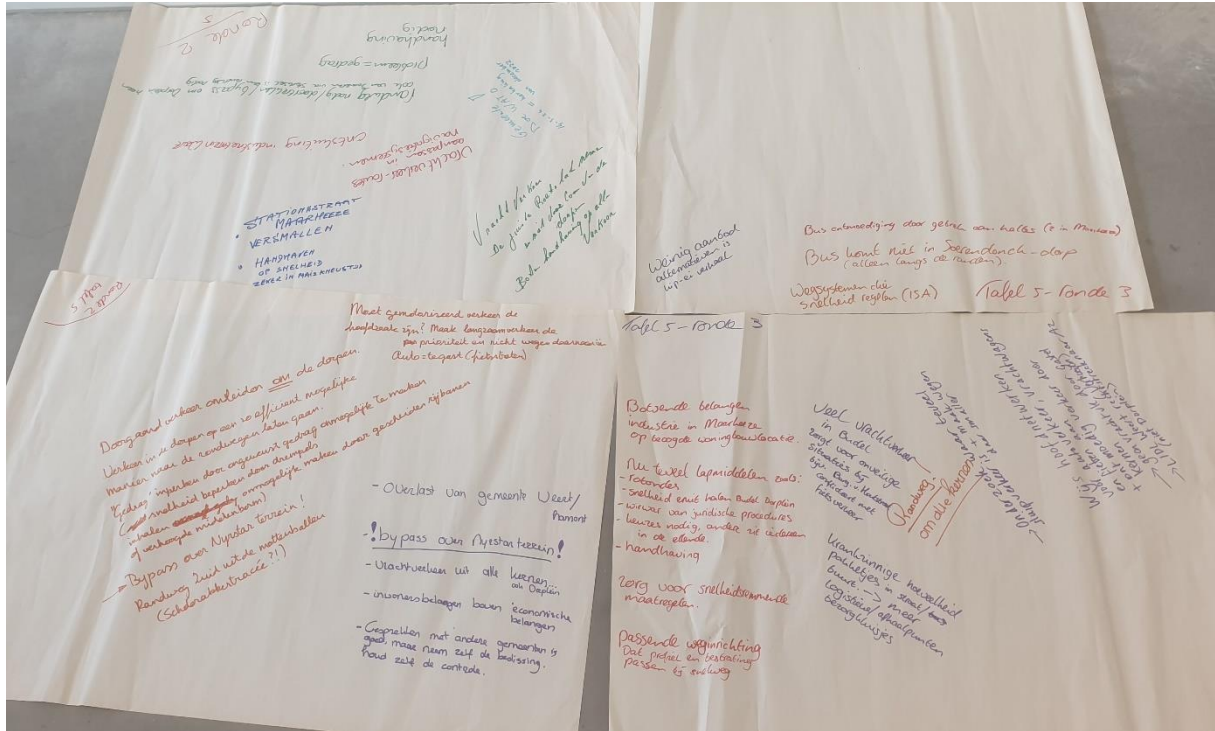 Ronde 2
5
handhaving
nodig
probleem = gedrag
Vrachtverkeer-routes
aanpassen in
navigatiesystemen.
Ontsluiting industrieterrein
• STATIONSSTRAAT
MAARHEEZE
VERSMALLEN
• HANDHAVEN
OP SNELHEID
ZEKER IN
Vracht verkeer
De juiste Route laat nemen
dorpen
handhaving op alle
Verkeer
Weinig aanbod
alternatieven is
kip-ei verhaal
Bus ontmoediging door gebrek aan haltes (2 in Maarheeze)
Bus komt niet in Soerendonck-dorp
(alleen langs de randen).
Wegsystemen die
snelheid regelen (ISA)
Tafel 5 - ronde 3
Ronde 2
tafel 5
Moet gemotoriseerd verkeer de
hoofdzaak zijn? Maak langzaamverkeer de
prioriteit en richt wegen daarnaar in
Auto = te gast (fietsstraten).
Doorgaand verkeer omleiden om de dorpen.
Verkeer in de dorpen op een zo efficient mogelijke
manier naar de randwegen laten gaan.
Gedrag, inperken door ongewenst gedrag onmogelijk te maken
(snelheid beperken door drempels
inhalen onmogelijk maken door gescheiden rijbanen
of verhoogde middenberm)
→ Bypass over Nyrstar terrein!
Randweg Zuid uit de mottenballen
(Schoorabbertracée?!)
- Overlast van gemeente Weert/
Hamont
- ! bypass over Nyrstar terrein !
- Vrachtverkeer uit alle kernen
ook Dorplein
- inwonersbelangen boven economische
belangen
- Gesprekken met andere gemeenten is
goed, maar neem zelf de beslissing,
houd zelf de controle.
Tafel 5 - ronde 3
Botsende belangen
industrie in Maarheeze
op beoogde woningbouwlocatie.
Nu teveel lapmiddelen zoals:
- rotondes
- snelheid eruit halen Budel Dorplein
- wirwar van juridische procedures
- keuzes nodig, anders zit iedereen
in de ellende.
- handhaving
Zorg voor snelheidsremmende
maatregelen.
passende weginrichting
Dat profiel en bestrating
passen bij snelweg
Veel vrachtverkeer
in Budel
zorgt voor onveilige
situaties bij
conflicteert met
fietsverkeer
Randweg
om alle kernen
→ Onderzoek
sluipverkeer
Wijs
hoofdnetwerken
aan
en ontmoedig
Krankzinnige hoeveelheid
pakketjes in straat/
buurt --> meer
logistieke/afhaalpunten
bezorgkluisjes